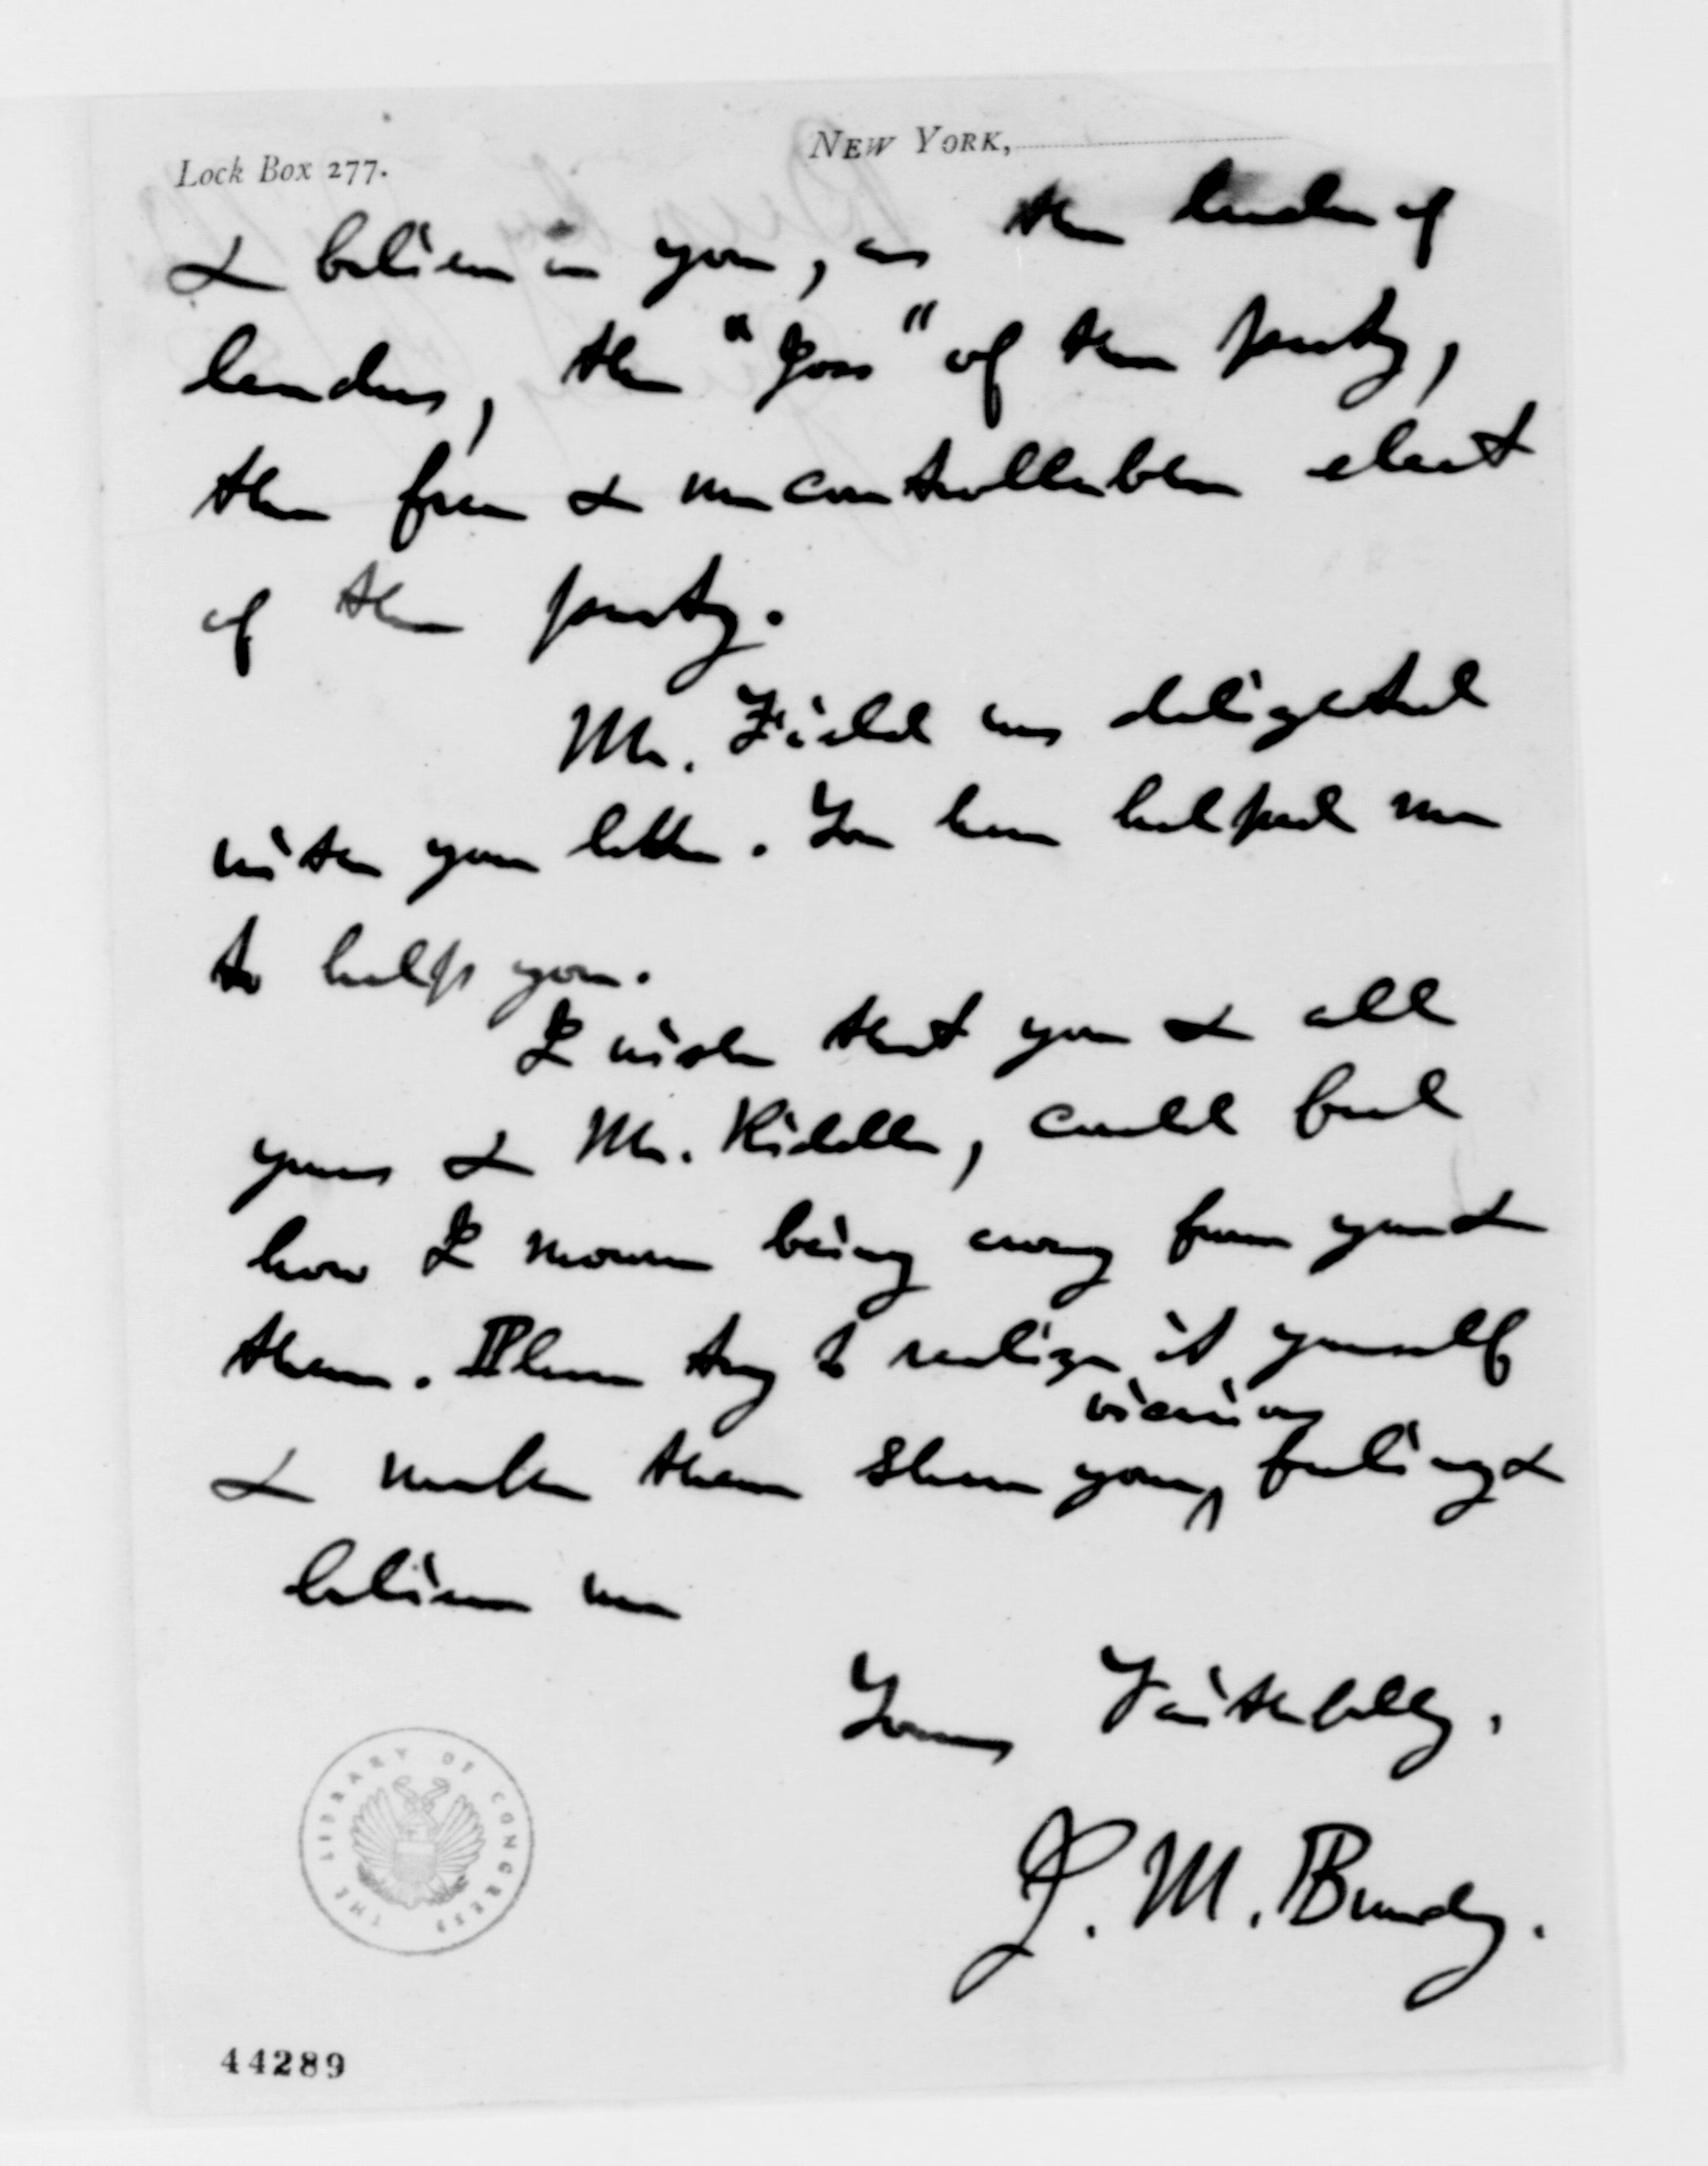 NEW YORK,
Lock Box 277.
& believe in you, as the leader of
leaders, the "Joss" of the party,
the free & uncontrollable elect
of the party.
Mr. Field was delighted
with your letter. You have helped me
to help you.
I wish that you & all
yours & Mr. Riddle, could feel
how I mourn being away from you &
them. Please try to realize it yourself
vicarious
& make them share your feeling &
believe me
Yours Faithfully,
J. M. Bundy.
THE LIBRARY OF CONGRESS
44289